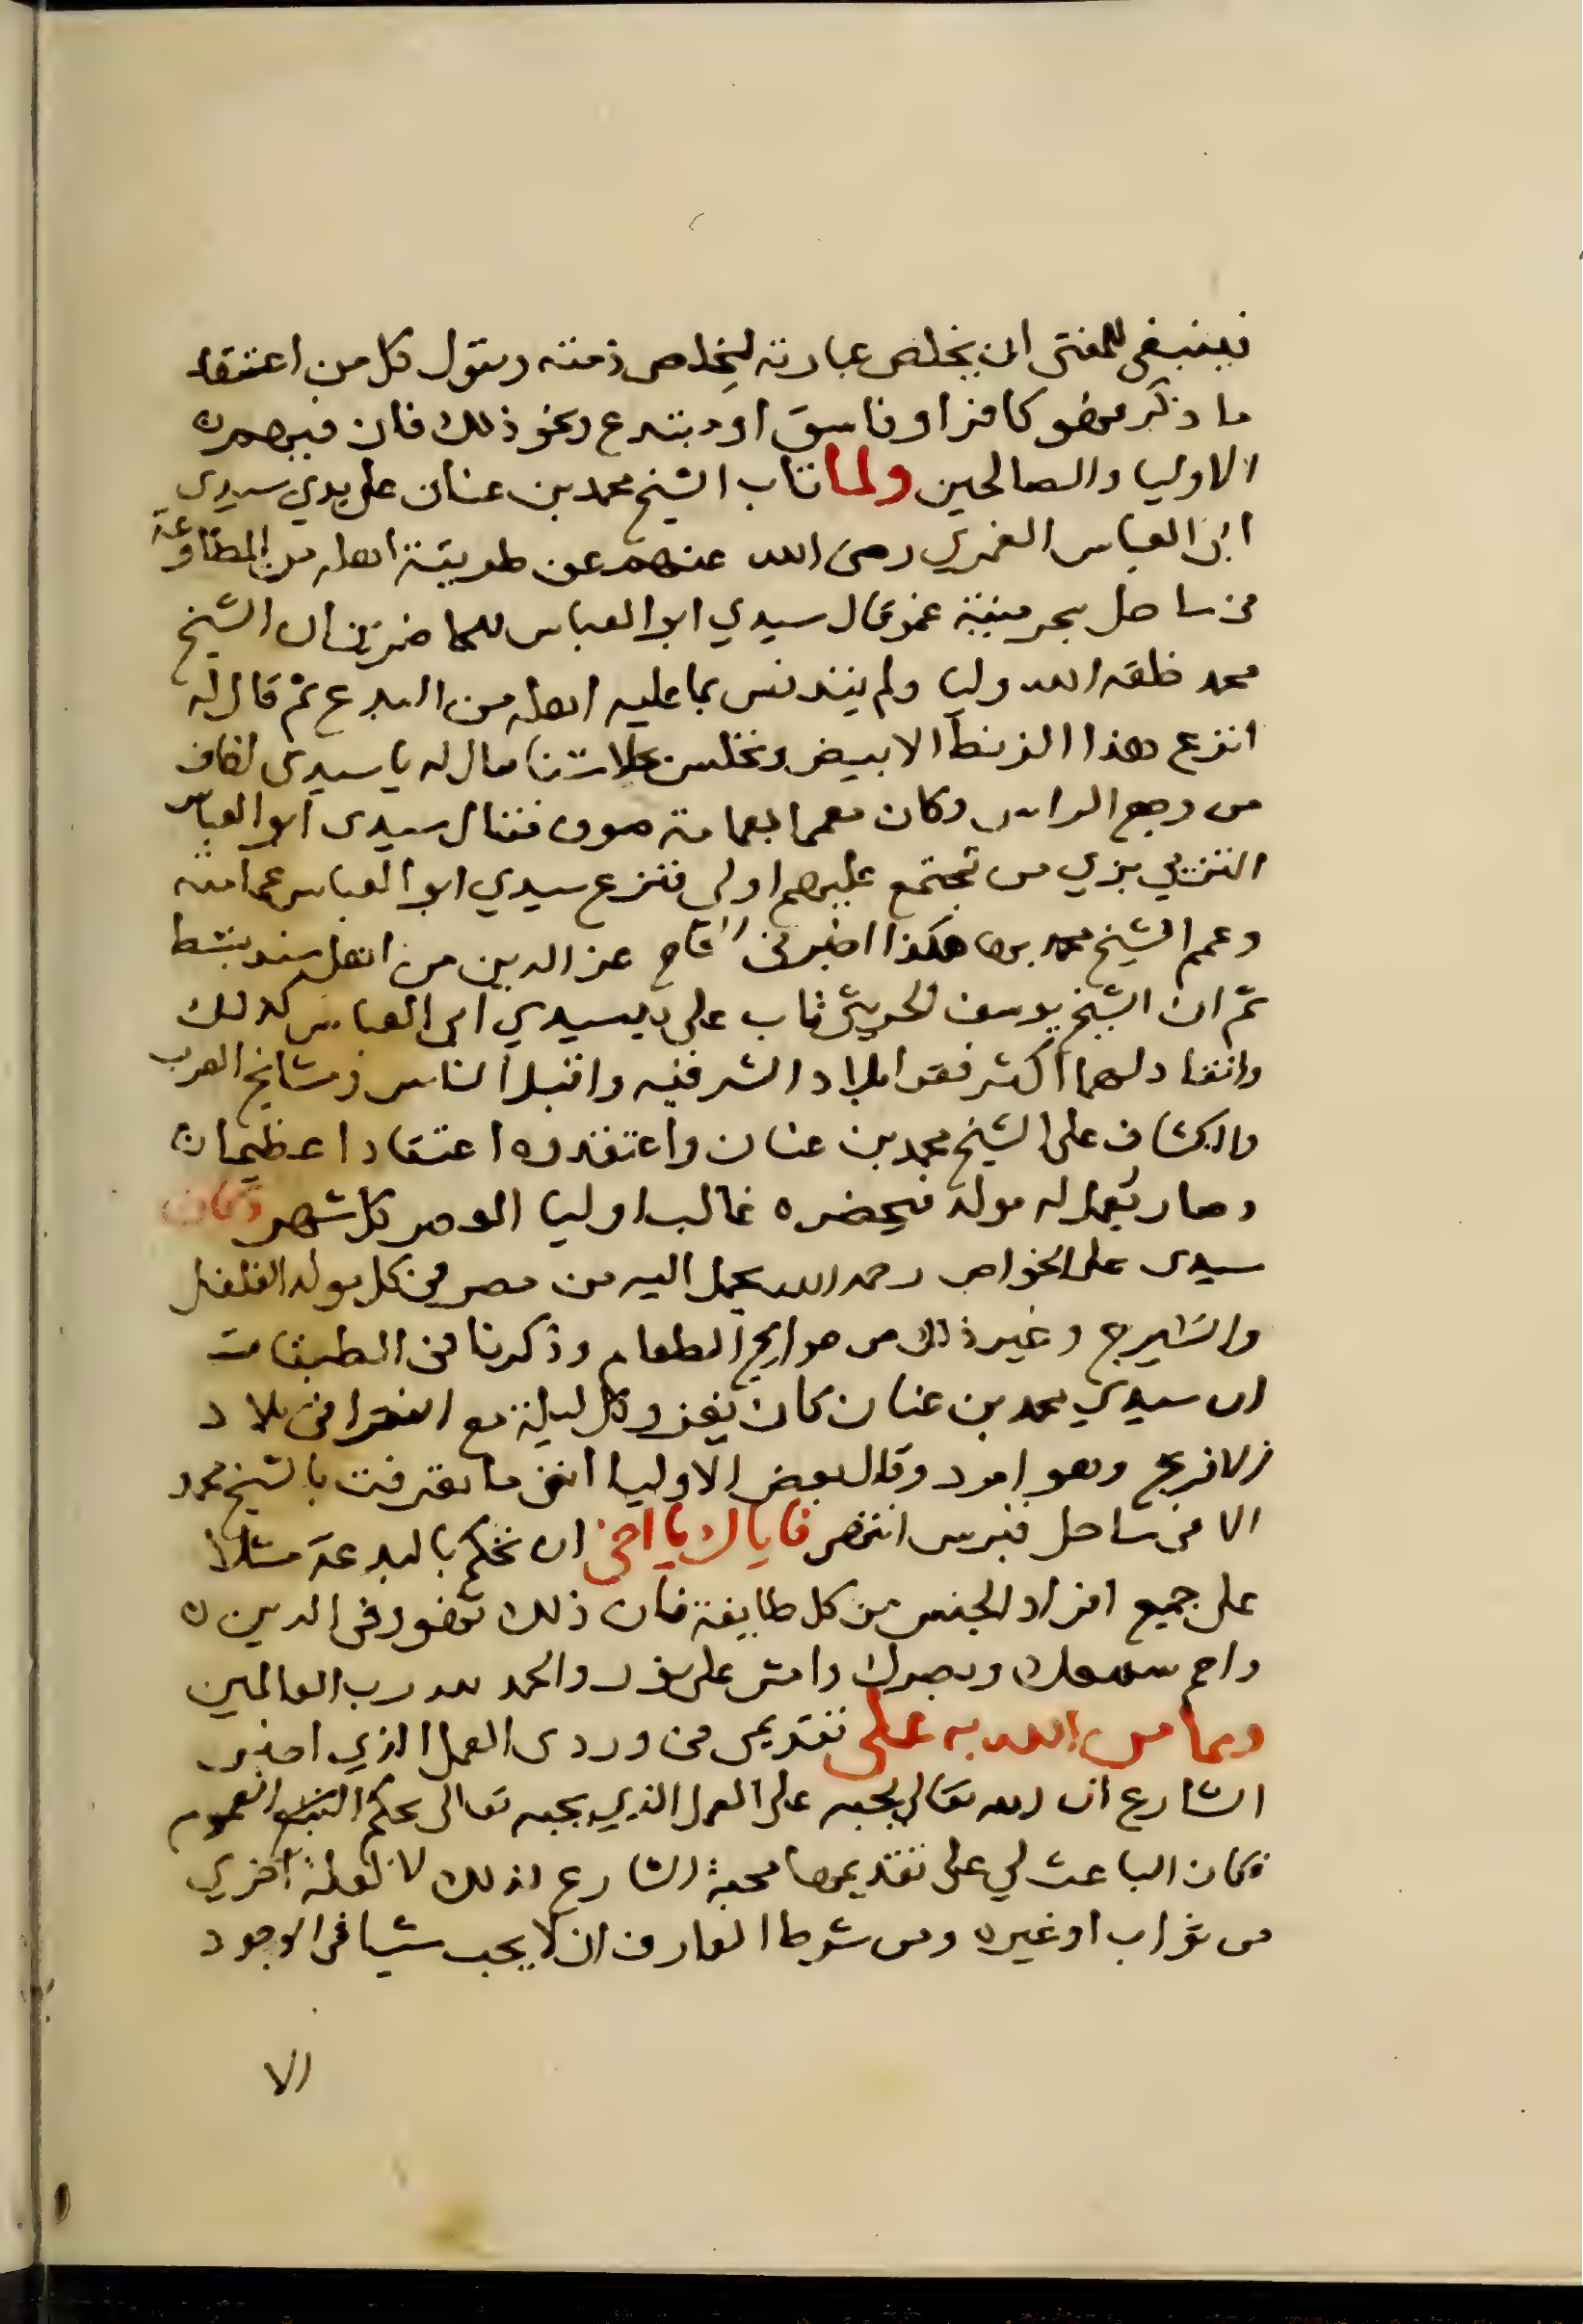 فينبغى للمفتى ان يخلص عبارته ليخلص ذمته ويقول كل من اعتقد
ما ذكر فهو كافر او فاسق او مبتدع ونحو ذلك فان فيهم
الاوليا والصالحين ولما تاب الشيخ محمد بن عنان على يدي سيدي
ابى العباس الغمري رضى الله عنهم عن طريقة اهله من المطاوعة
فى ساحل بحر منية غمر قال سيدي ابو العباس للحاضرين ان الشيخ
محمد خلقه الله وليا ولم يتدنس بما عليه اهله من البدع ثم قال له
انزع هذا الزنط الابيض فقال له يا سيدى اخاف
من وجع الراس وكان معمما بعمامة صوف فقال سيدى ابو العباس
التزيي بزي من تجتمع عليهم اولى فنزع سيدي ابو العباس عمامته
وعمم الشيخ محمد بها هكذا اخبرنى الحاج عز الدين من اهل سندبسط
ثم ان الشيخ يوسف الحريثى تاب على يد سيدي ابى العباس كذلك
وانقاد لهما اكثر فقرا البلاد الشرقيه واقبل الناس ومشايخ العرب
والكشاف على الشيخ محمد بن عنان واعتقدوه اعتقادا عظيما
وصار يعمل له مولد فيحضره غالب اوليا العصر كل شهر وكان
سيدى على الخواص رحمه الله يحمل اليه من مصر فى كل مولد الفلفل
والشيرج وغير ذلك من حوايج الطعام وذكرنا فى الطبقات
ان سيدي محمد بن عنان كان يغزو كل ليلة مع الفقرا فى بلاد
الافرنج وهو امرد وقال بعض الاوليا اننى ما تعرفت بالشيخ محمد
الا فى ساحل قبرس انتهى فاياك يا اخى ان تحكم بالبدعة مثلا
على جميع افراد الجنس من كل طايفة فان ذلك تهور فى الدين
واحم سمعك وبصرك وامش على نور والحمد لله رب العالمين
ومما من الله به على تقديمى فى وردى العمل الذي اخبر
الشارع ان الله تعالى يحبه على العمل الذي يحبه تعالى بحكم العموم
فكان الباعث لي على تقديمها محبة الشارع لذلك لا لعلة اخري
من ثواب او غيره ومن شرط العارف ان لا يحب شيا فى الوجود
الا